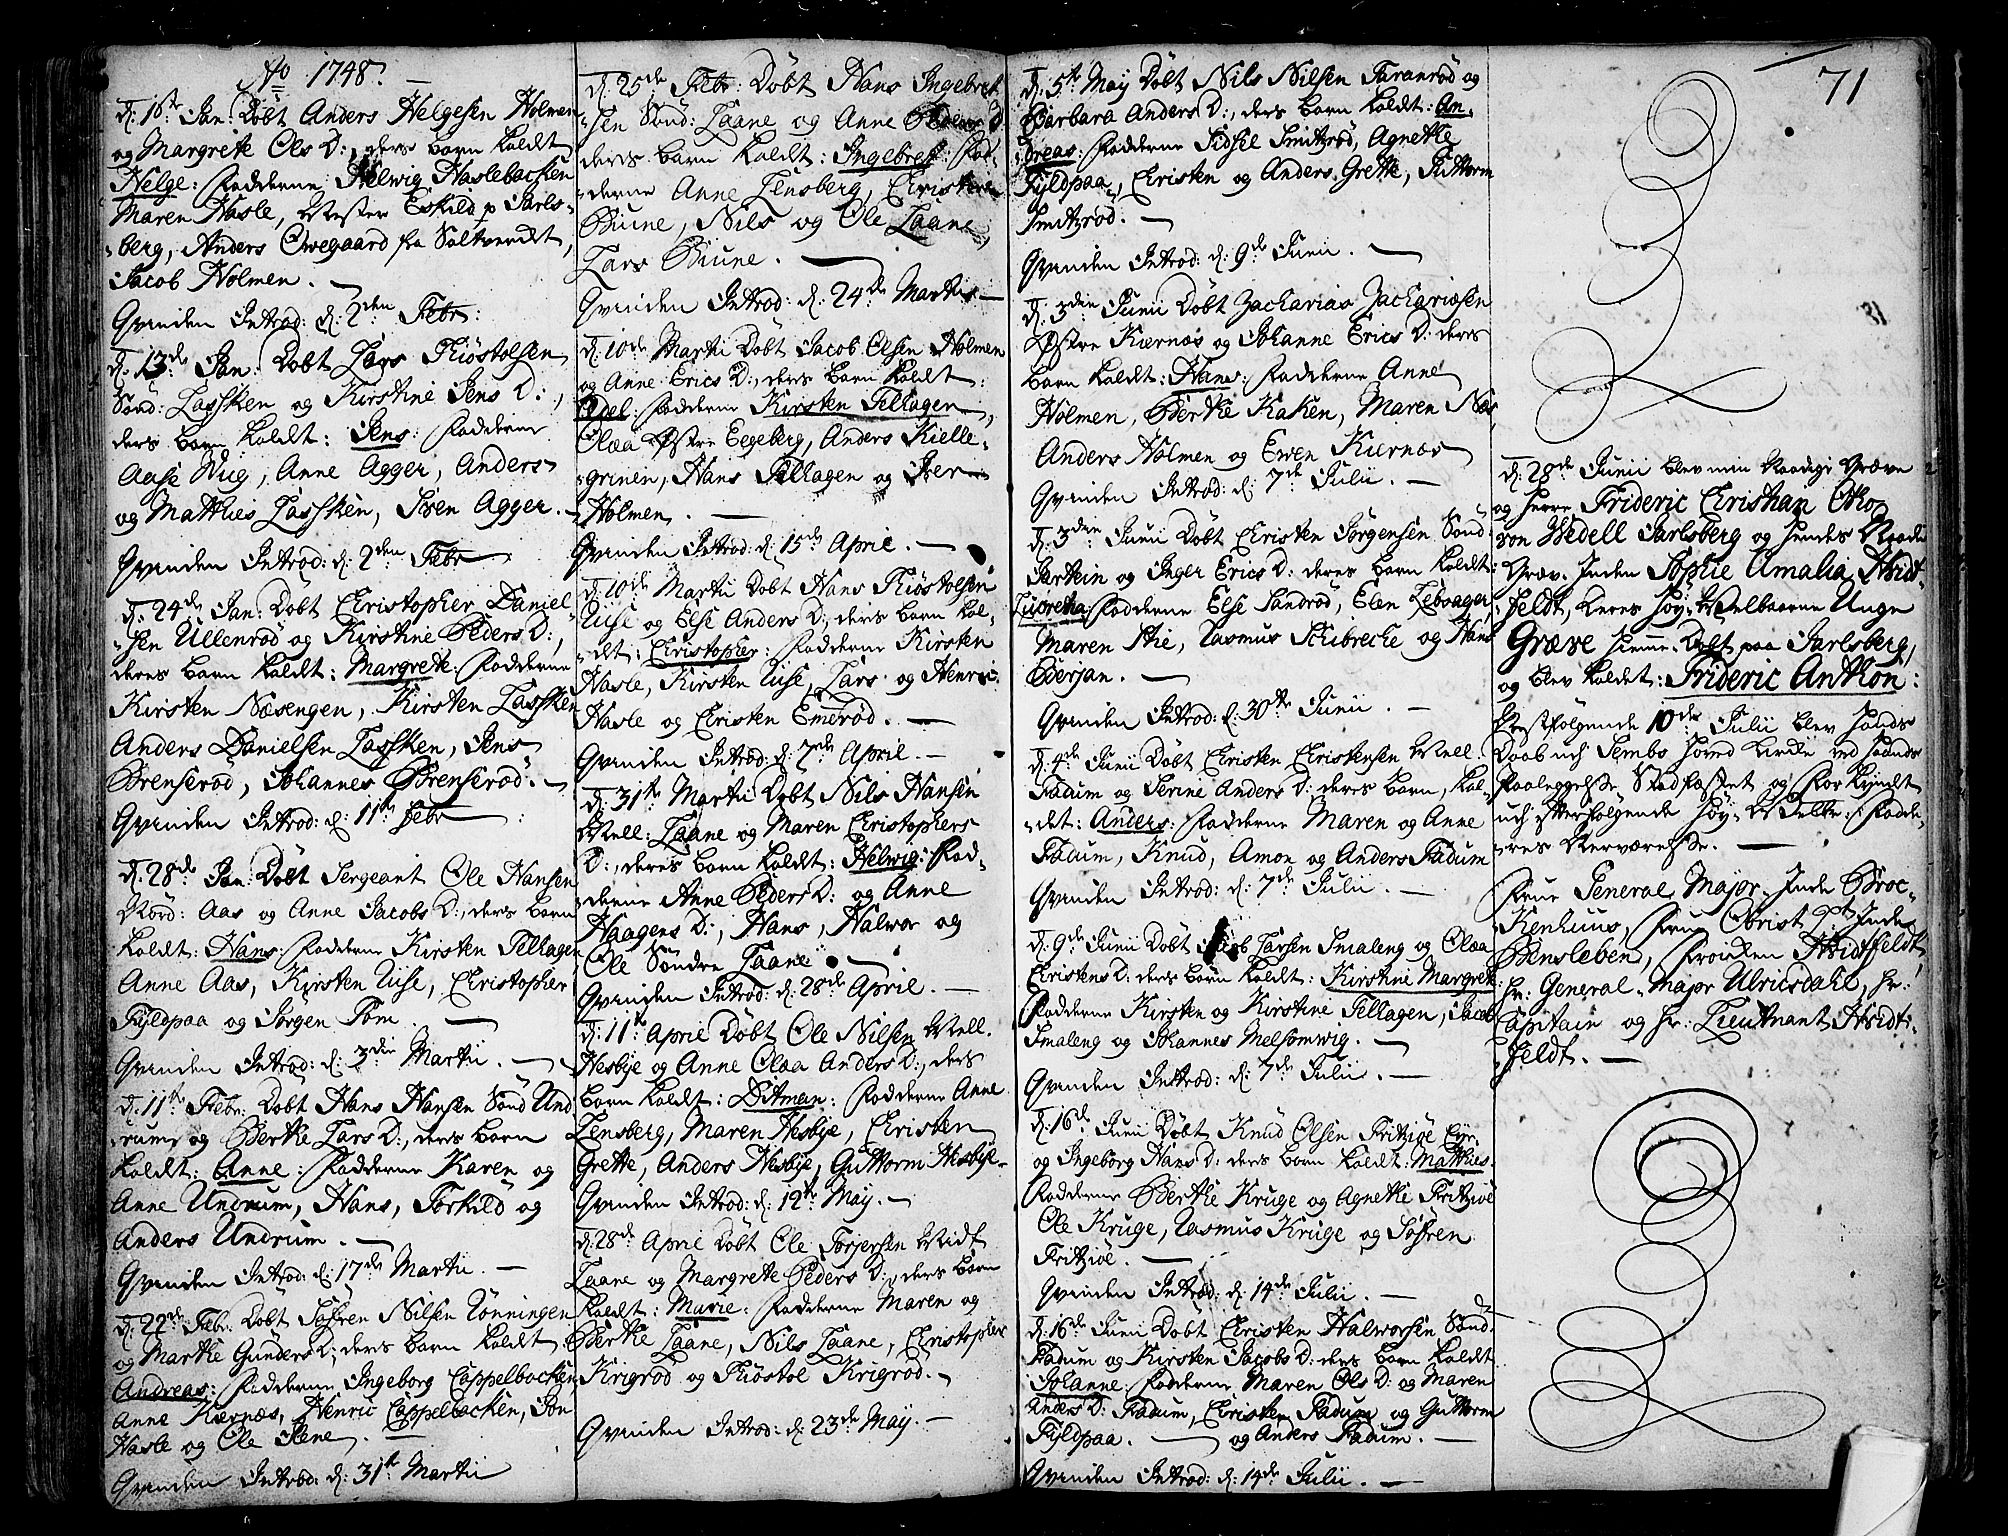 Ao 1748.
D: 16de Jan: Döbt Anders Helgesen Holmen
og Margrete Ols D:, ders barn kaldt
Helge: Fadderne Helwig Haslebacken
Maren Hasle, Mester Eskild p Jarls-
berg, Anders Owegaard fra Soltvendt,
Jacob Holmen.
Qvinden Introd: d: 2den Febr:
D: 13de Jan: Döbt Lars Kiöstolsen
Sönd: Lassken og Kirstine Jens D:,
ders barn kaldt: Jens: Fadderne
Aase Wug, Anne Agger, Anders
og Matthies Lassken, Sven Agger.
Qvinden Introd: d: 2den Febr
D: 24de Jan: Döbt Christopher Daniel-
sen Ullenröd og Kirstine Peders D:,
deres barn kaldt: Margrete: Fadderne
Kirsten Næsengen, Kirsten Lassken
Anders Danielsen Lassken, Jens
Brenseröd, Johannes Brenseröd.
Qvinden Introd: d: 11te Febr
D: 28de Jan: Döbt Sergeant Ole Hansen
Nörd: Aas og Anne Jacobs D:, ders barn
kaldt: Hans: Fadderne Kirsten Felhagen
Anne Aas, Kirsten Uise, Christopher
Fyldpaa og Jörgen Fom.
Qvinden Introd: d: 3die Martii.
D: 11te Febr: Döbt Hans Hansen Sönd Und-
rum og Berthe Lars D:, ders barn
kaldt: Anne: Fadderne Karen og
Anne Undrum, Hans, Torkild og
Anders Undrum.
Qvinden Introd: d: 17de Martii.
D: 22de Febr: Döbt Söfren Nilsen Rönningen
og Marthe Gunders D:, ders barn kaldt:
Andreas: Fadderne Ingeborg Cappelbacken
Anne Kiernæs, Henric Cappelbacken, Jon
Hasle og Ole Stene.
Qvinden Introd: d: 31te Martii
D: 25de Febr: Döbt Hans Ingebret-
sen Sönd: Laane og Anne Peders D
ders barn kaldt: Ingebret: Fad-
derne Anne Lensberg, Christine
Biune, Nils og Ole Laane,
Lars Biune.
Qvinden Introd: d: 24de Martii
D: 10de Martii Döbt Jacob Olsen Holmen
og Anne Erics D:, ders barn kaldt:
Edel: Fadderne Kirsten Felhagen,
Olæa Östre Eegeberg, Anders Kielle-
grinen, Hans Felhagen og Iver
Holmen.
Qvinden Introd: d: 15de April.
D: 10de Martii Döbt Hans Kiöstolsen
Uise og Else Anders D:, ders barn kal-
dt: Christopher: Fadderne Kirsten
Hasle, Kirsten Uise, Lars og Henric
Hasle og Christen Emeröd.
Qvinden Introd: d: 7de April.
D: 31te Martii Döbt Nils Hansen
Mell: Laane og Maren Christophers
D:, deres barn kaldt: Helwig: Fad-
derne Anne Peders D: og Anne
Haagens D:, Hans, Halwor og
Ole Söndre Laane.
Qvinden Introd: d: 28de April.
D: 11te April Döbt Ole Nilsen Mell.
Hesbye og Anne Olæa Anders D:, ders
barn kaldt: Ditman: Fadderne Anne
Lensberg, Maren Hesbye, Christen
Grette, Anders Hesbye, Guttorm Hesbye.
Qvinden Introd: d: 12te May.
D: 28de April Döbt Ole Torjersen Midt
Laane og Margrete Peders D:, ders barn
kaldt: Marie: Fadderne Maren og
Berthe Laane, Nils Laane, Christopher
Krigröd og Kiöstol Krigröd.
Qvinden Introd: d: 23de May.
D: 5te May Döbt Nils Nilsen Faranröd og
Barbara Anders D:, ders barn kaldt: An-
dreas: Fadderne Sidsel Smitzröd, Agnethe
Fyldpaa, Christen og Anders Grette, Guttorm
Smitzröd.
Qvinden Introd: d: 9de Junii.
D: 3die Junii Döbt Zacharias Zachariæsen
Östre Kiernæs og Johanne Erics D: ders
barn kaldt: Hans: Fadderne Anne
Holmen, Berthe Kaken, Maren Næs,
Anders Holmen og Ewen Kiernæs
Qvinden Introd: d: 7de Julii.
D: 3den Junii Döbt Christen Jörgensen Sönd:
Jartein og Inger Erics D: deres barn kaldt:
Lucretia: Fadderne Else Sandröd, Elen Lebsager,
Maren Stie, Rasmus Schibreche og Hans
Berjan.
Qvinden Introd: d: 30te Junii.
D: 4de Junii Döbt Christen Christensen Mell.
Fadum og Serine Anders D: deres barn kal-
dt: Anders: Fadderne Maren og Anne
Fadum, Knud, Amon og Anders Fadum
Qvinden Introd: d: 7de Julii.
D: 9de Junii Döbt Jacob Larsen Smaleng og Olæa
Christens D: ders barn kaldt: Kirstine Margrete
Fadderne Kirsten og Kirstine Felhagen, Jacob
Smaleng og Johannes Melsomwig.
Qvinden Introd: d: 7de Julii.
D: 16de Junii Döbt Knud Olsen Fritzöe Eyr.
og Ingeborg Hans D: ders barn kaldt: Matthies:
Fadderne Berthe Kruge og Agnethe Fritzöe
Ole Kruge, Rasmus Kruge og Söfren
Fritzöe.
Qvinden Introd: d: 14de Julii.
D: 16de Junii Döbt Christen Halworsen Sönd.
Fadum og Kirsten Jacobs D: ders barn kaldt
Johanne: Fadderne Maren Ols D: og Maren
Anders D: Fadum, Christen Fadum og Guttorm
Fyldpaa. og Anders Fadum.
Qvinden Introd: d: 14de Julii.
71
D: 28de Junii blev min Naadige Græve
og Herre Frideric Christian Otto
von Wedell Jarlsberg og Hendes Naade
Græv-Inden Sophie Amalia Hvidt-
feldt, deres Höy-Velbaarne Unge
Græve hiemme-Döbt paa Jarlsberg,
og blev kaldet: Frideric Anthon:
Næstfölgende 10de Julii blev hands
Daab udi Sembs hoved Kirke ved Haands
Paaleggelse Stadfæstet og forkyndt
udi efterfölgende Höy-Velb: Fadde-
res Nerværelse.
Frue General-Major-Inde Broc-
Kenhuus, Frue Obrist Lt Inde
Bensleben, Fröiken Hvidtfeldt,
Hr: General-Major Ulricsdahl, Hr:
Capitain og Hr: Lieutnant Hvidt-
feldt.